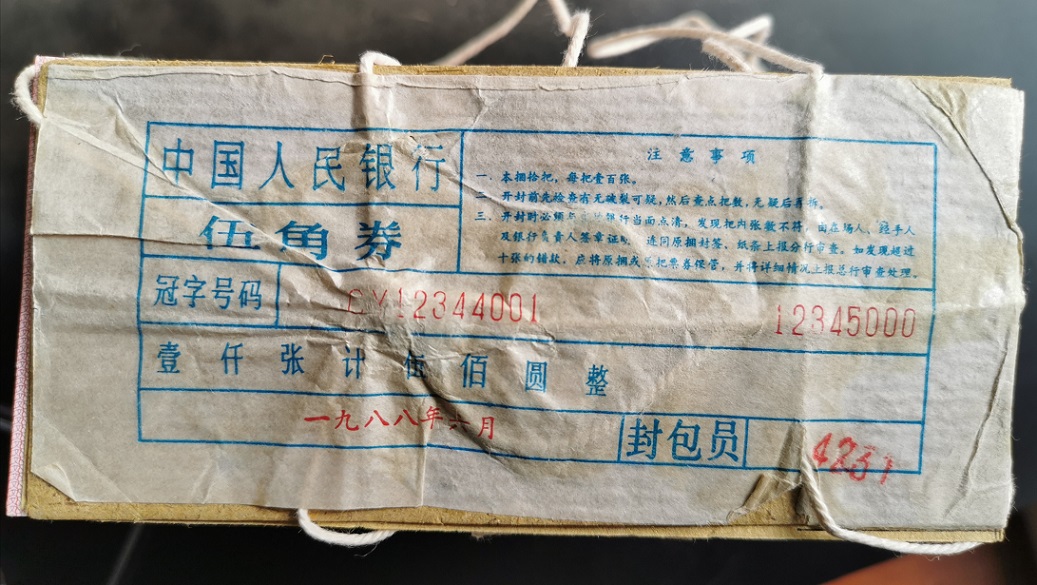 中国人民银行
伍角券
注意事项
一、本捆拾把，每把壹百张。
二、开封前先检查有无破裂可疑，然后查点把数，无疑后再拆。
三、开封时必须 银行当面点清，发现把内张数不符，由在场人、经手人
及银行负责人签章证明，连同原捆封签、纸条上报分行审查。如发现超过
十张的错款，应将原捆或 把票券保管，并将详细情况上报总行审查处理。
冠字号码
CY12344001 12345000
壹仟张计伍佰圆整
一九八八年六月
封包员
4231